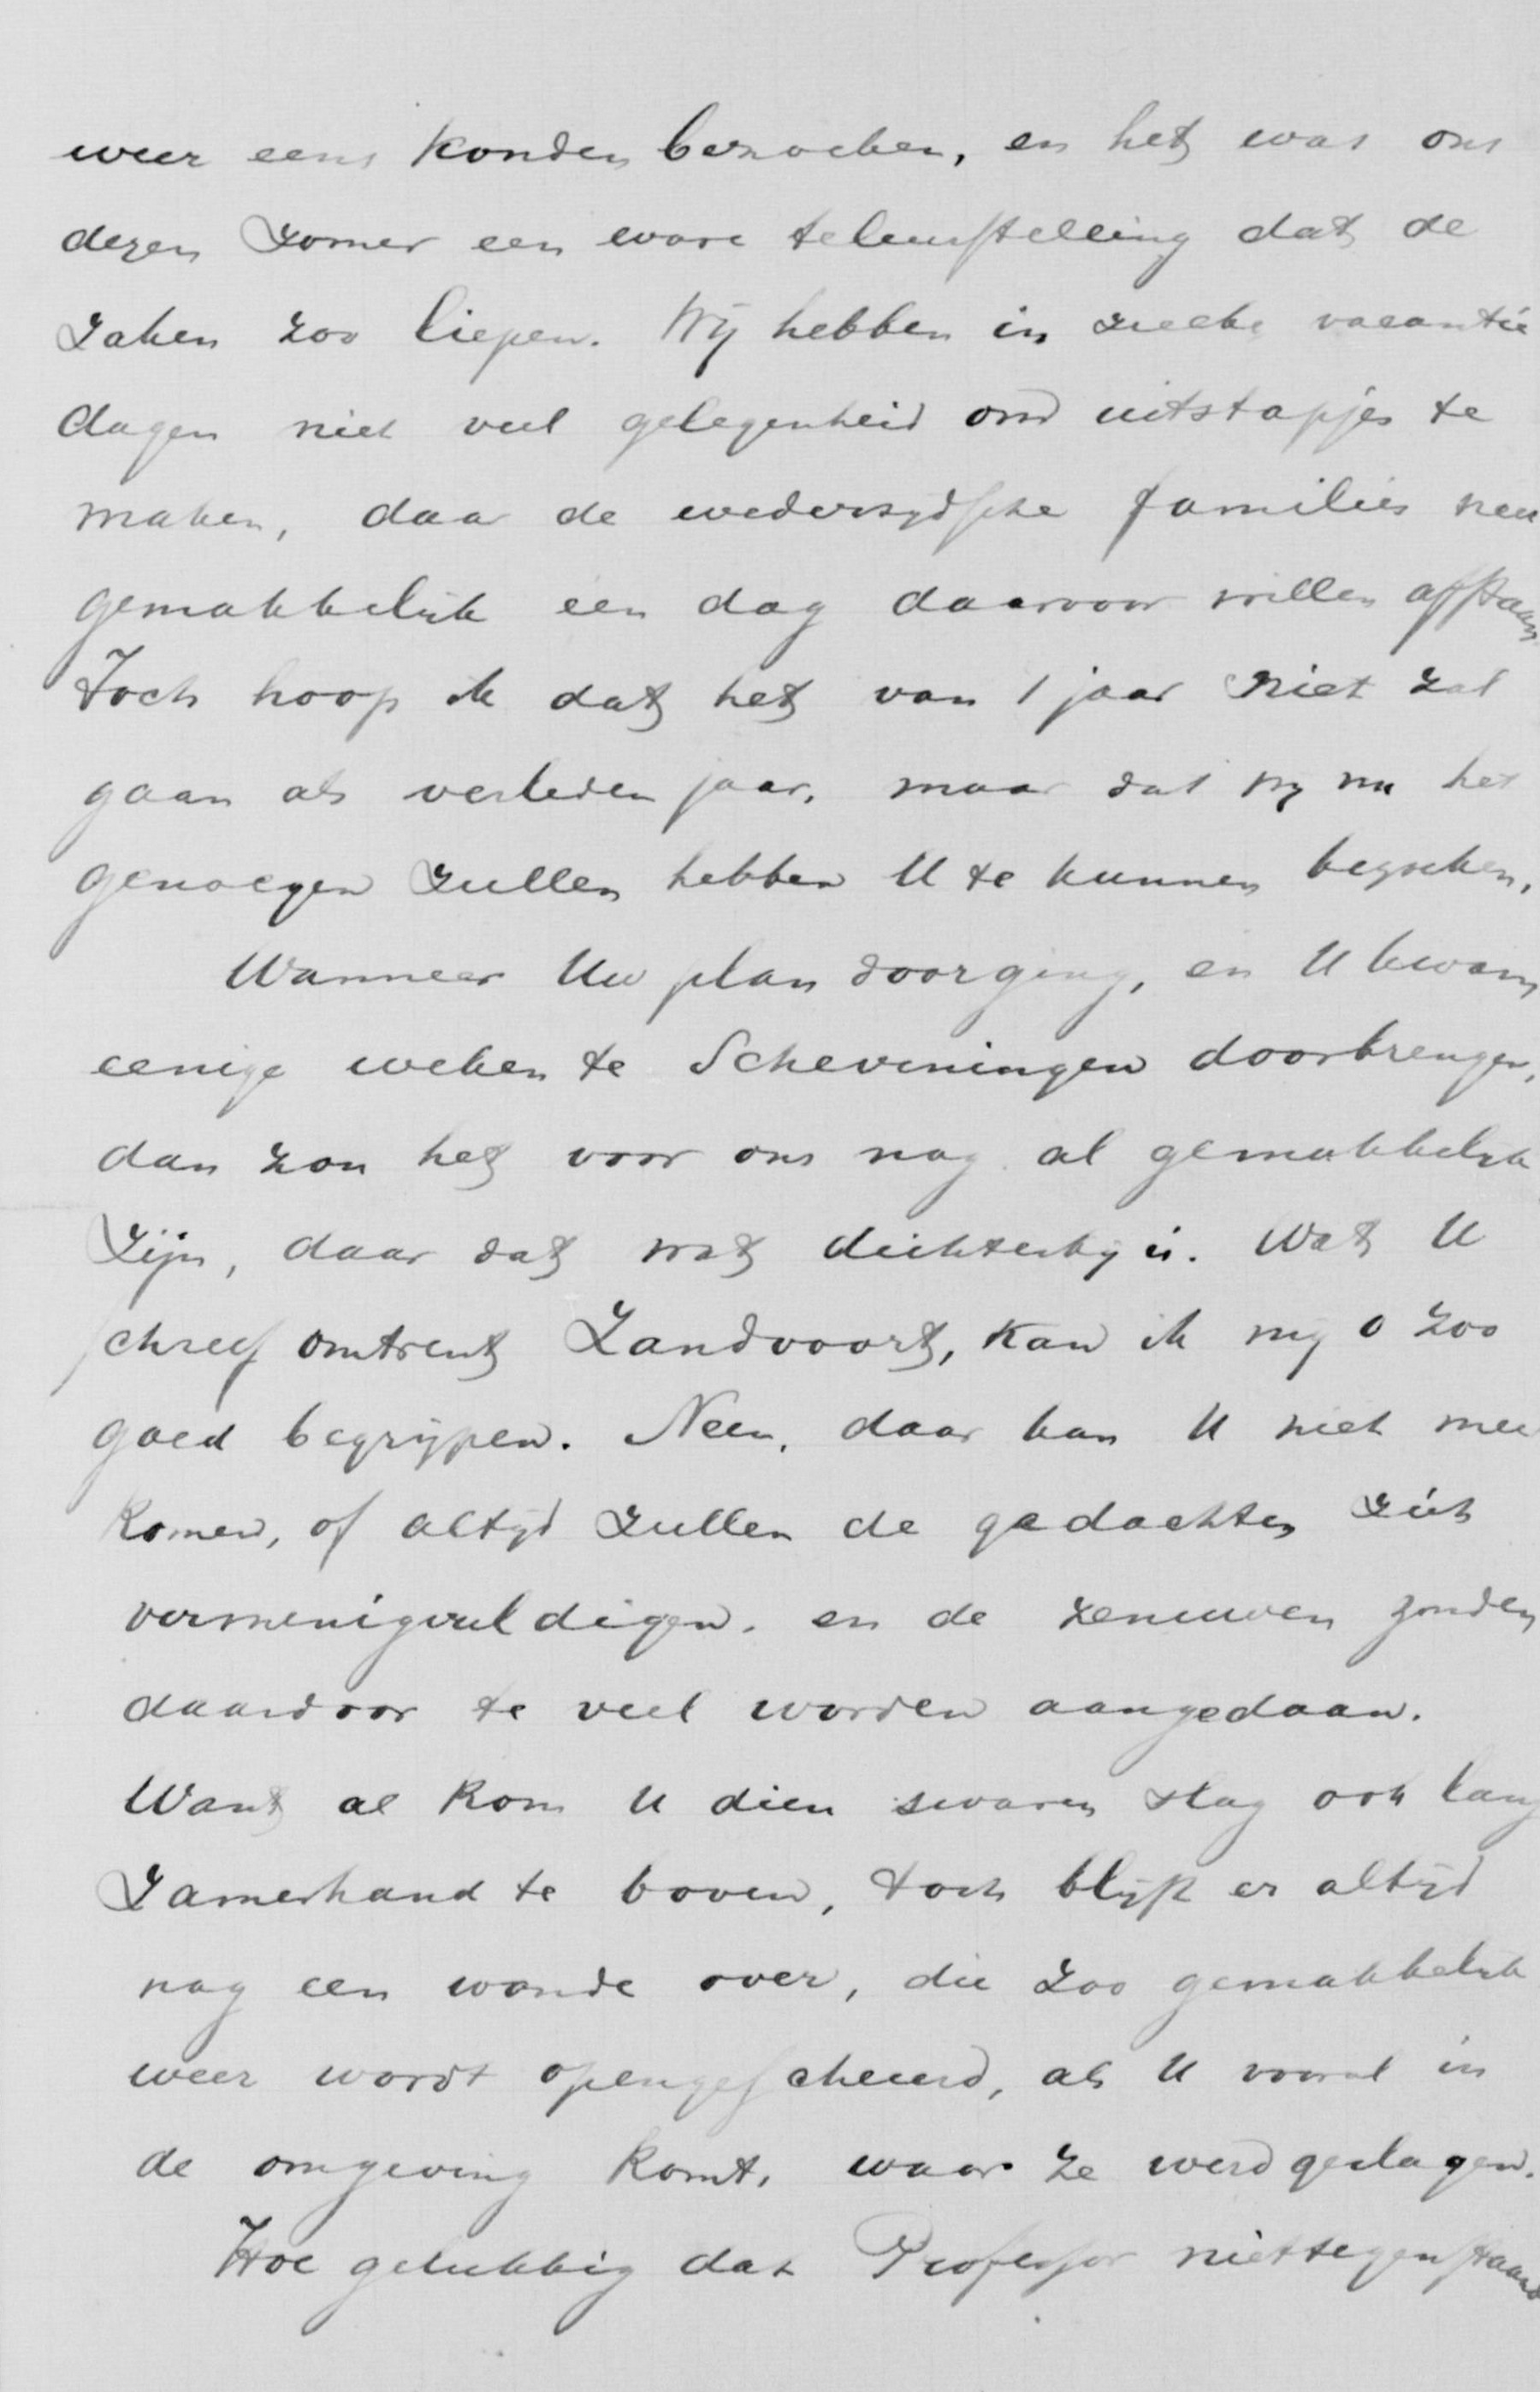 weer eens konden bezoeken, en het was ons
dezen zomer een ware teleurstelling dat de
zaken zoo liepen. Wij hebben in zulke vacantie
dagen niet veel gelegenheid om uitstapjes te
maken, daar de wederzijdsche families
gemakkelijk één dag daarvoor willen afstaan
Toch hoop ik dat het van 't jaar niet zal
gaan als verleden jaar, maar dat wij nu het
genoegen zullen hebben U te kunnen bezoeken,
Wanneer Uw plan doorging, en U kwam
eenige weken te Scheveningen doorbrengen,
dan zou het voor ons nog al gemakkelijk
zijn, daar dat wat dichterbij is. Wat U
schreef omtrent Zandvoort, kan ik mij o zoo
goed begrijpen. Neen, daar kan U niet meer
komen, of altijd zullen de gedachten zich
vermenigvuldigen, en de zenuwen zouden
daardoor te veel worden aangedaan.
Want al kom U dien zwaren slag ook lang
zamerhand te boven, toch blijft er altijd
nog een wonde over, die zoo gemakkelijk
weer wordt opengescheurd, als U vooral in
de omgeving komt, waar ze werd geslagen.
Hoe gelukkig dat Professor niettegenstaand